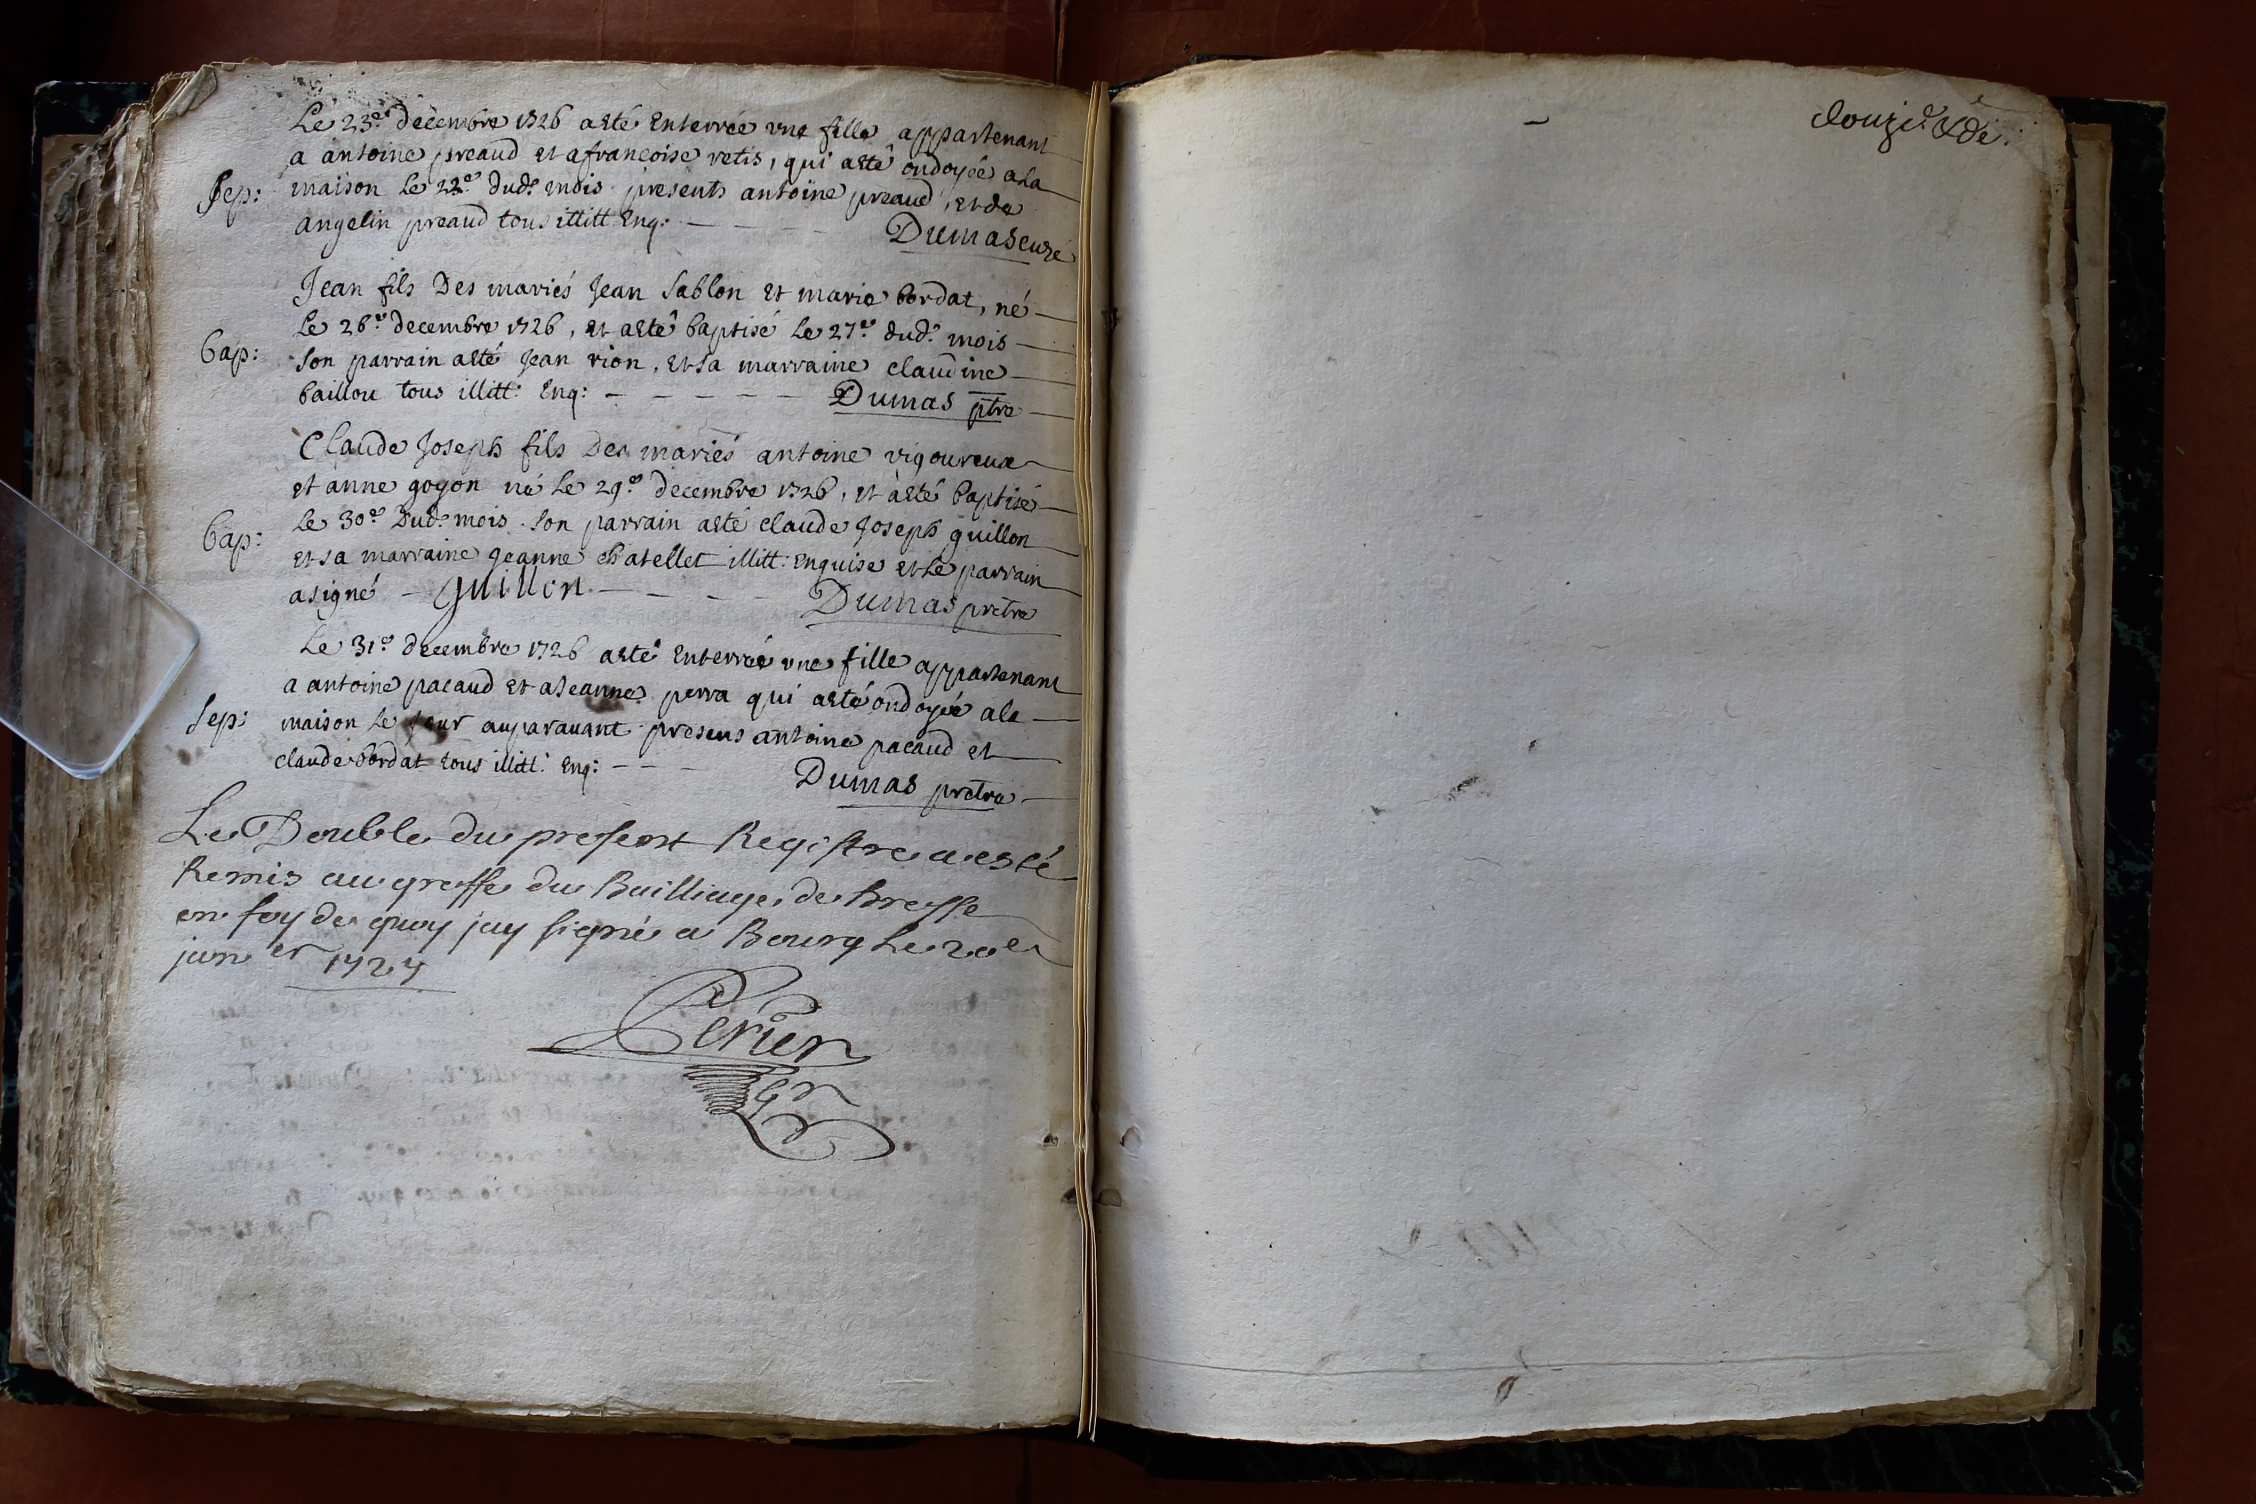 Le 23e decembre 1726 a esté enterrée une fille appartenant
a antoine preaud et a francoise retis, qui a esté ondoyée a la
Sep: maison le 22e dud. mois presents antoine preaud, et de
angelin preaud tous illitt enq:
Dumas curé
Jean fils Des mariés Jean Sablon et marie bordat, né
le 26e decembre 1726, et a esté baptisé le 27e dud. mois
bap: son parrain a esté Jean rion, et sa marraine claudine
baillou tous illitt: enq: Dumas ptre
Claude Joseph fils Des mariés antoine vigoureux
et anne goyon né le 29e decembre 1726, et a esté baptisé
le 30e Dud. mois. son parrain a esté claude Joseph guillon
bap: et sa marraine jeanne chatellet illitt: enquise et le parrain
a signé - guillon Dumas pretre
Le 31e decembre 1726 a esté enterrée une fille appartenant
a antoine pacaud et a Jeanne perra qui a esté ondoyée a la
Sep: maison le jour auparavant presens antoine pacaud et
claude bordat tous illitt: enq:
Dumas pretre
Le Double du present Registre a esté
Remis au greffe du Bailliage de Bresse
en foy de quoy jay signé a Bourg le 20e
janer 1727
Perier
gr
douze &de.